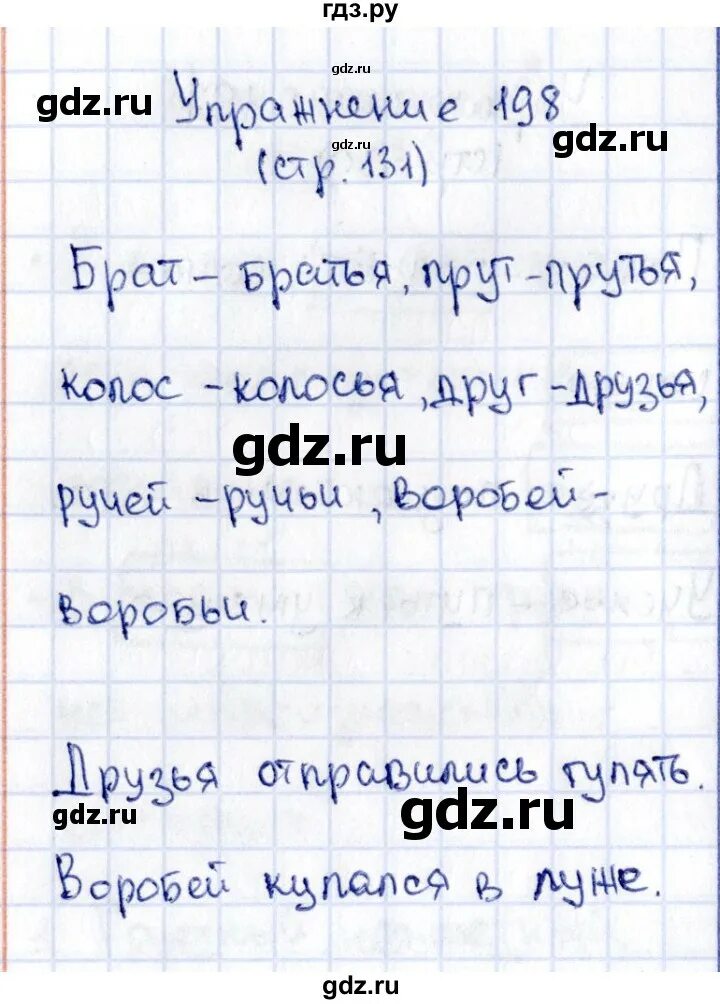 гдз.ру
gdz.ru
gdz.ru
Упражнение 198
gdz.ru
gdz.ru
(стр. 131)
gdz.ru
Брат – братья, прут – прутья,
gdz.ru
колос – колосья, друг – друзья,
gdz.ru
ручей – ручьи, воробей –
gdz.ru
воробьи.
gdz.ru
Друзья отправились гулять.
gdz.ru
gdz.ru
Воробей купался в луже.
gdz.ru
gdz.ru